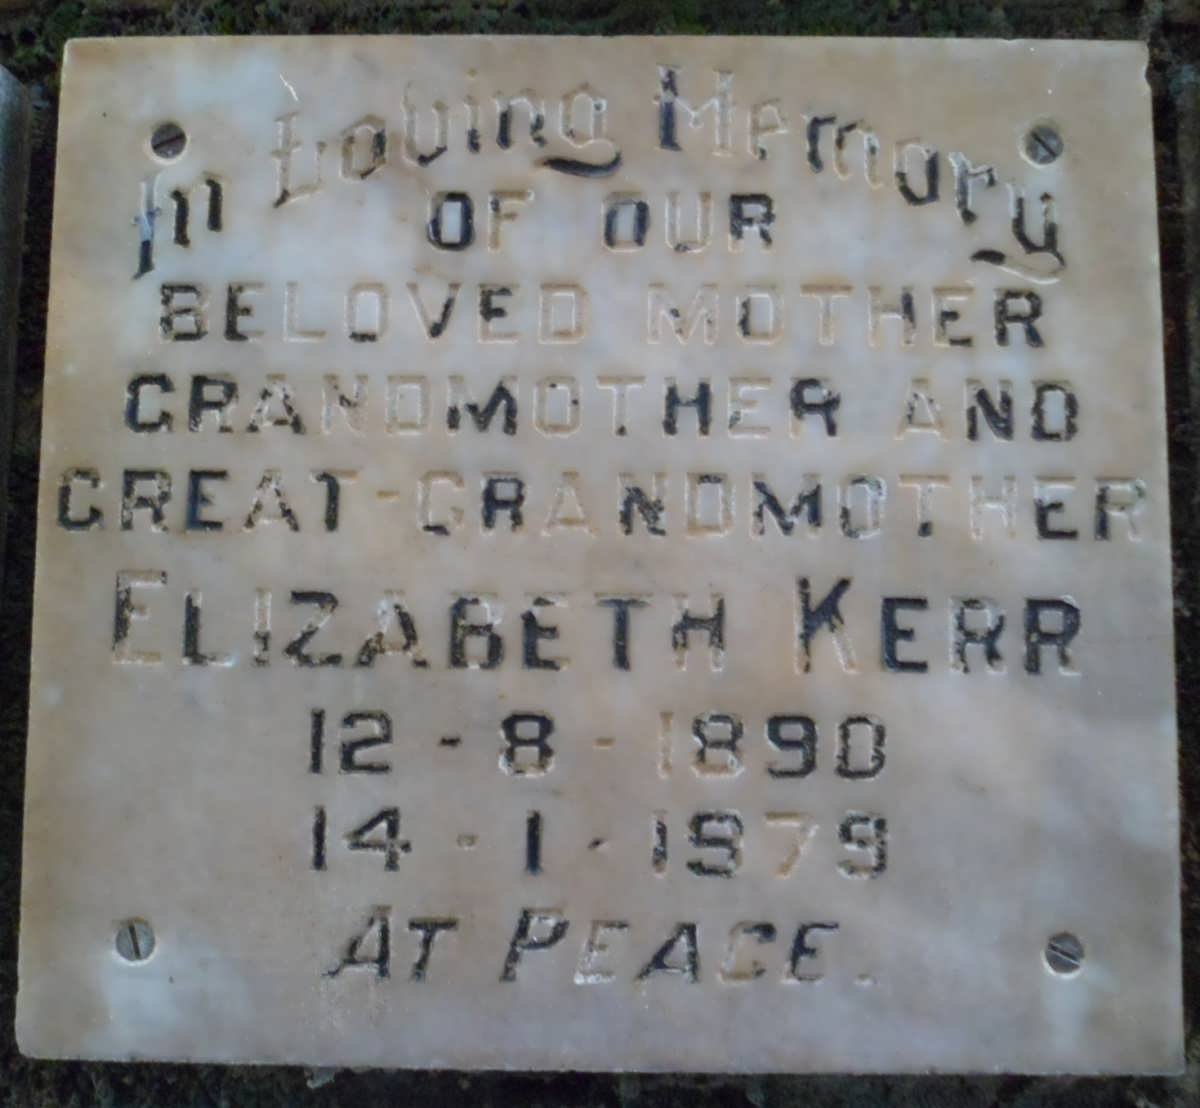 In Loving Memory
OF OUR
BELOVED MOTHER
GRANDMOTHER AND
GREAT-GRANDMOTHER
ELIZABETH KERR
12 - 8 - 1890
14 - 1 - 1979
AT PEACE.